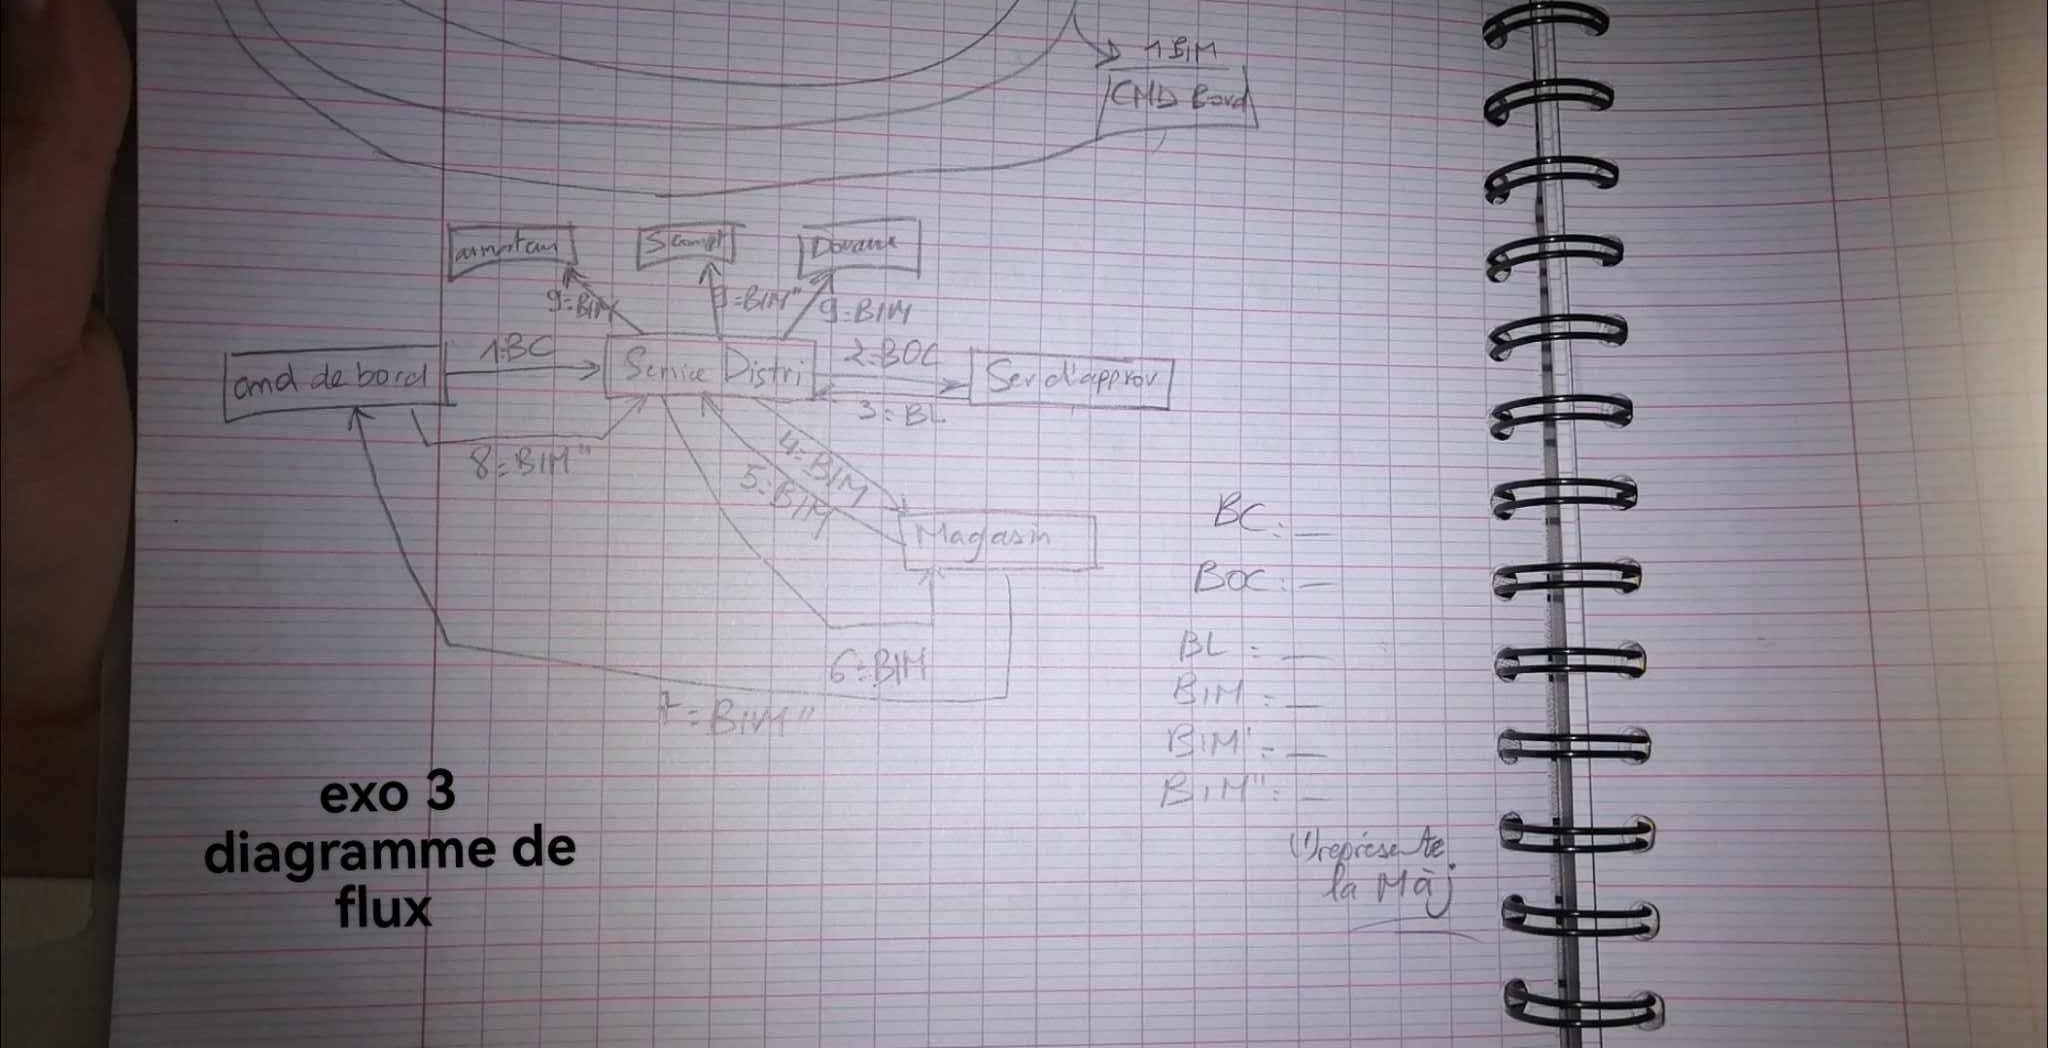 1 BIM
CMD Bord
armateur
S compt
Douane
9=BIM
9=BIM"
9=BIM
1:BC
2=BOC
cmd de bord
Service Distri
Ser d'approv
3=BL
8=BIM"
4=BIM
5=BIM
Magasin
6=BIM
7=BIM"
BC: _
BOC: _
BL = _
BIM = _
BIM' = _
BIM": _
(') représente
la Màj
exo 3
diagramme de
flux